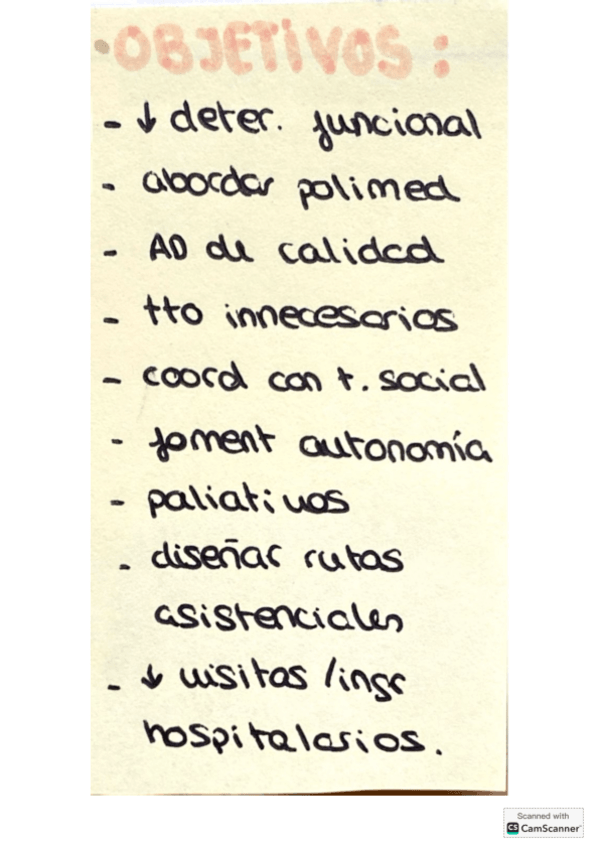 • OBJETIVOS :
- ↓ deter. funcional
- abordar polimed
- AD de calidad
- tto innecesarios
- coord con t. social
- foment autonomía
- paliativos
- diseñar rutas
asistenciales
- ↓ visitas / ingr
hospitalarios.
Scanned with
CS CamScanner